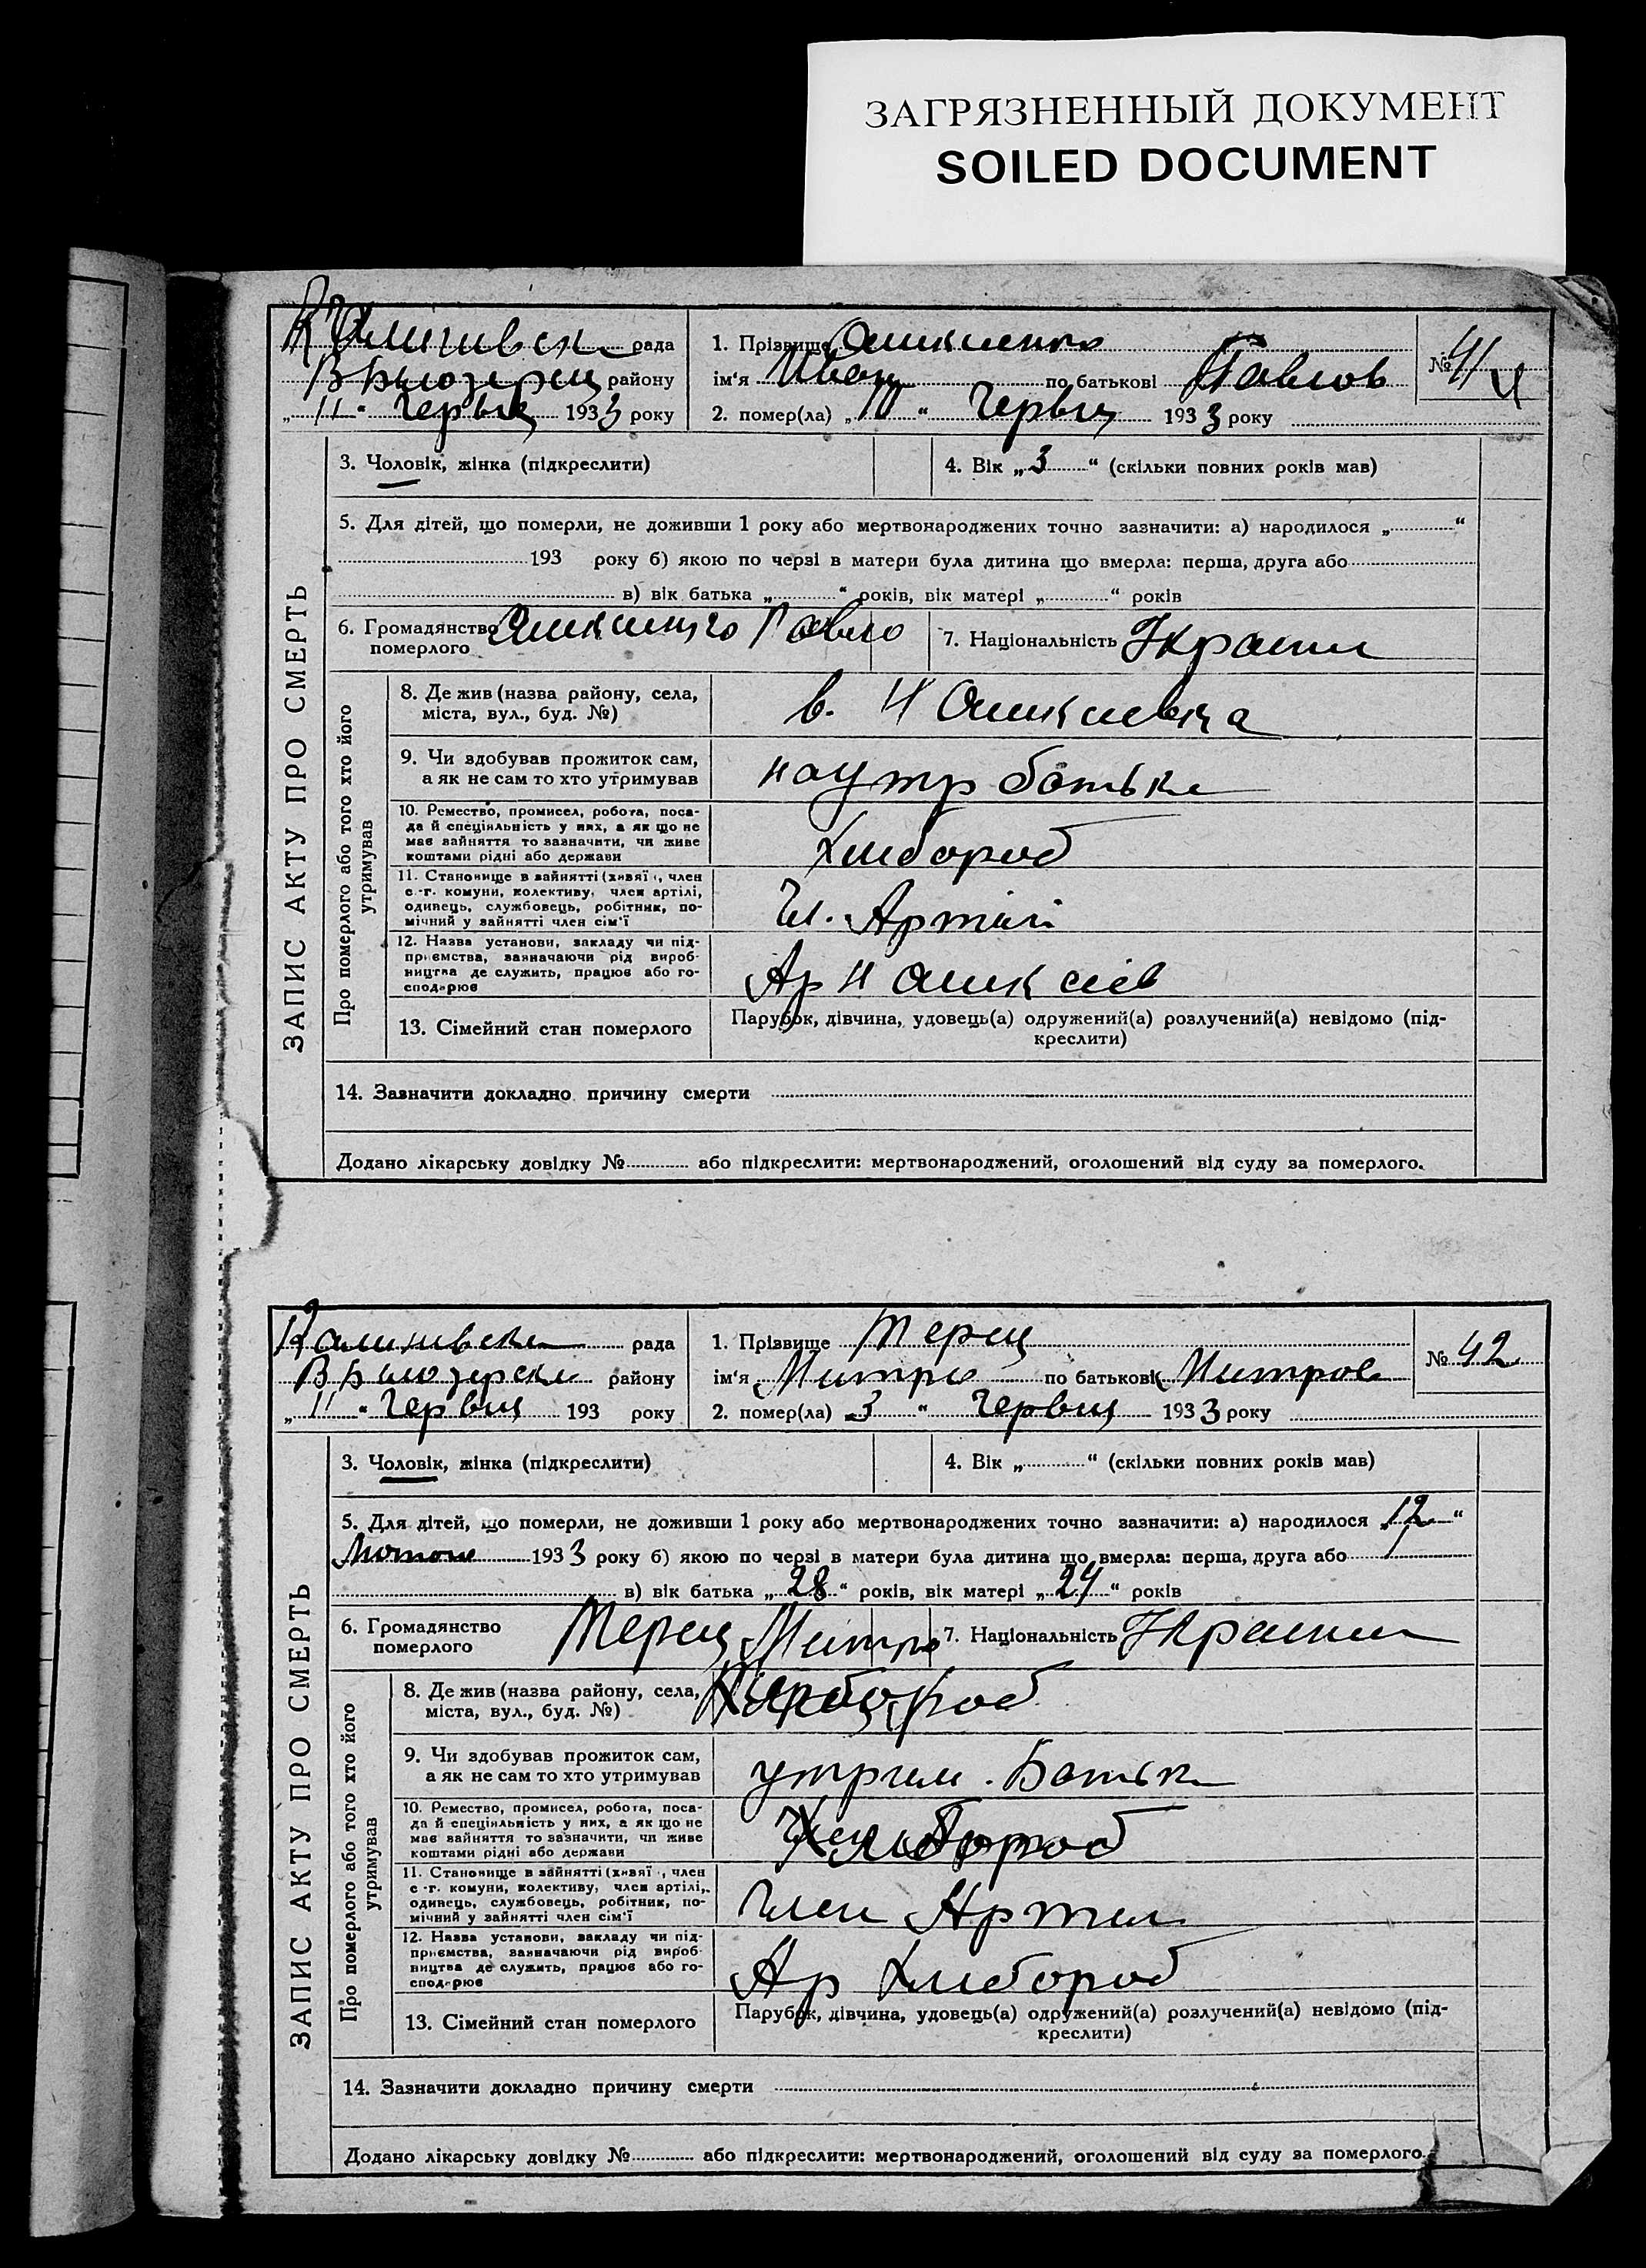 ЗАГРЯЗНЕННЫЙ ДОКУМЕНТ
SOILED DOCUMENT
рада
району
„ 11 “ 1933 року
1. Прізвище
ім'я Иван по батькові Павлов
2. помер(ла) „ 10 “ 1933 року
№ 41
ЗАПИС АКТУ ПРО СМЕРТЬ
3. Чоловік, жінка (підкреслити)
4. Вік „ 3 “ (скільки повних років мав)
5. Для дітей, що померли, не доживши 1 року або мертвонароджених точно зазначити: а) народилося „ “
193 року б) якою по черзі в матери була дитина що вмерла: перша, друга або
в) вік батька „ “ років, вік матері „ “ років
6. Громадянство
померлого
7. Національність Украин
Про померлого або того хто його
утримував
8. Де жив (назва району, села,
міста, вул., буд. №)
9. Чи здобував прожиток сам,
а як не сам то хто утримував
на утр батьк
10. Ремество, промисел, робота, поса-
да й спеціяльність у них, а як що не
має зайняття то зазначити, чи живе
коштами рідні або держави
Хлибороб
11. Становище в зайнятті (хазяї, член
с.-г. комуни, колективу, член артілі,
одинець, службовець, робітник, по-
мічний у зайнятті член сім'ї
Чл. Артілі
12. Назва установи, закладу чи під-
приємства, зазначаючи рід вироб-
ництва де служить, працює або го-
сподарює
Ар
13. Сімейний стан померлого
Парубок, дівчина, удовець(а) одружений(а) розлучений(а) невідомо (під-
креслити)
14. Зазначити докладно причину смерти
Додано лікарську довідку № або підкреслити: мертвонароджений, оголошений від суду за померлого.
Калинивськ рада
району
„ 11 “ Червц 193 року
1. Прізвище Терещ
ім'я Митро по батькові Митров
2. помер(ла) „ 3 “ Червц 1933 року
№ 42
ЗАПИС АКТУ ПРО СМЕРТЬ
3. Чоловік, жінка (підкреслити)
4. Вік „ “ (скільки повних років мав)
5. Для дітей, що померли, не доживши 1 року або мертвонароджених точно зазначити: а) народилося „ 12 “
1933 року б) якою по черзі в матери була дитина що вмерла: перша, друга або
в) вік батька „ 28 “ років, вік матері „ 24 “ років
6. Громадянство
померлого
Терещ Митро
7. Національність Украин
Про померлого або того хто його
утримував
8. Де жив (назва району, села,
міста, вул., буд. №)
9. Чи здобував прожиток сам,
а як не сам то хто утримував
утрим. Батьк
10. Ремество, промисел, робота, поса-
да й спеціяльність у них, а як що не
має зайняття то зазначити, чи живе
коштами рідні або держави
Хлибороб
11. Становище в зайнятті (хазяї, член
с.-г. комуни, колективу, член артілі,
одинець, службовець, робітник, по-
мічний у зайнятті член сім'ї
Член Артил
12. Назва установи, закладу чи під-
приємства, зазначаючи рід вироб-
ництва де служить, працює або го-
сподарює
Ар Хлибороб
13. Сімейний стан померлого
Парубок, дівчина, удовець(а) одружений(а) розлучений(а) невідомо (під-
креслити)
14. Зазначити докладно причину смерти
Додано лікарську довідку № або підкреслити: мертвонароджений, оголошений від суду за померлого.